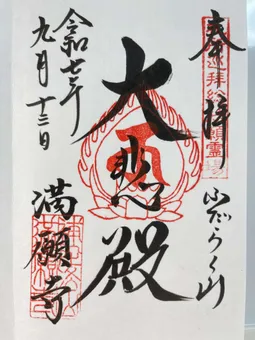 奉拝
ふだらく山
大悲殿
令和七年
九月十三日
満願寺